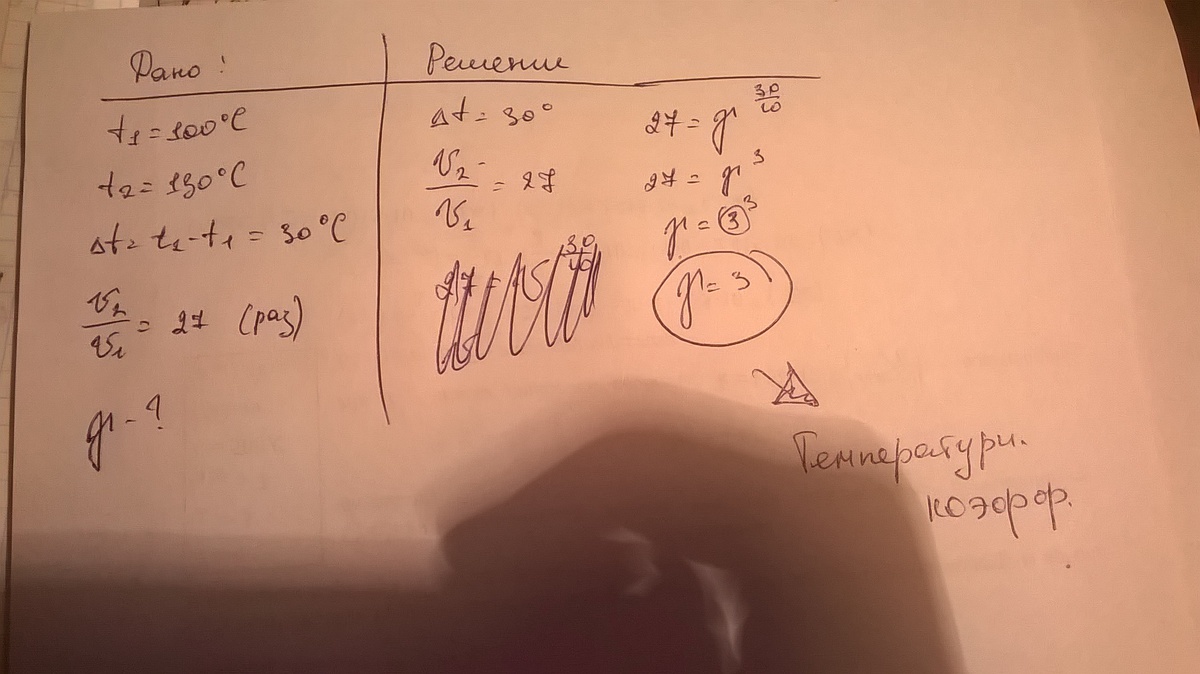 Дано:
t₁=100°C
t₂=130°C
Δt=t₂-t₁=30°C
v₂/v₁=27 (раз)
γ-?
Решение
Δt=30°
v₂/v₁=27
27=γ^30/10
27=γ^3
γ=3^3
γ=3
Температурн.
коэфф.